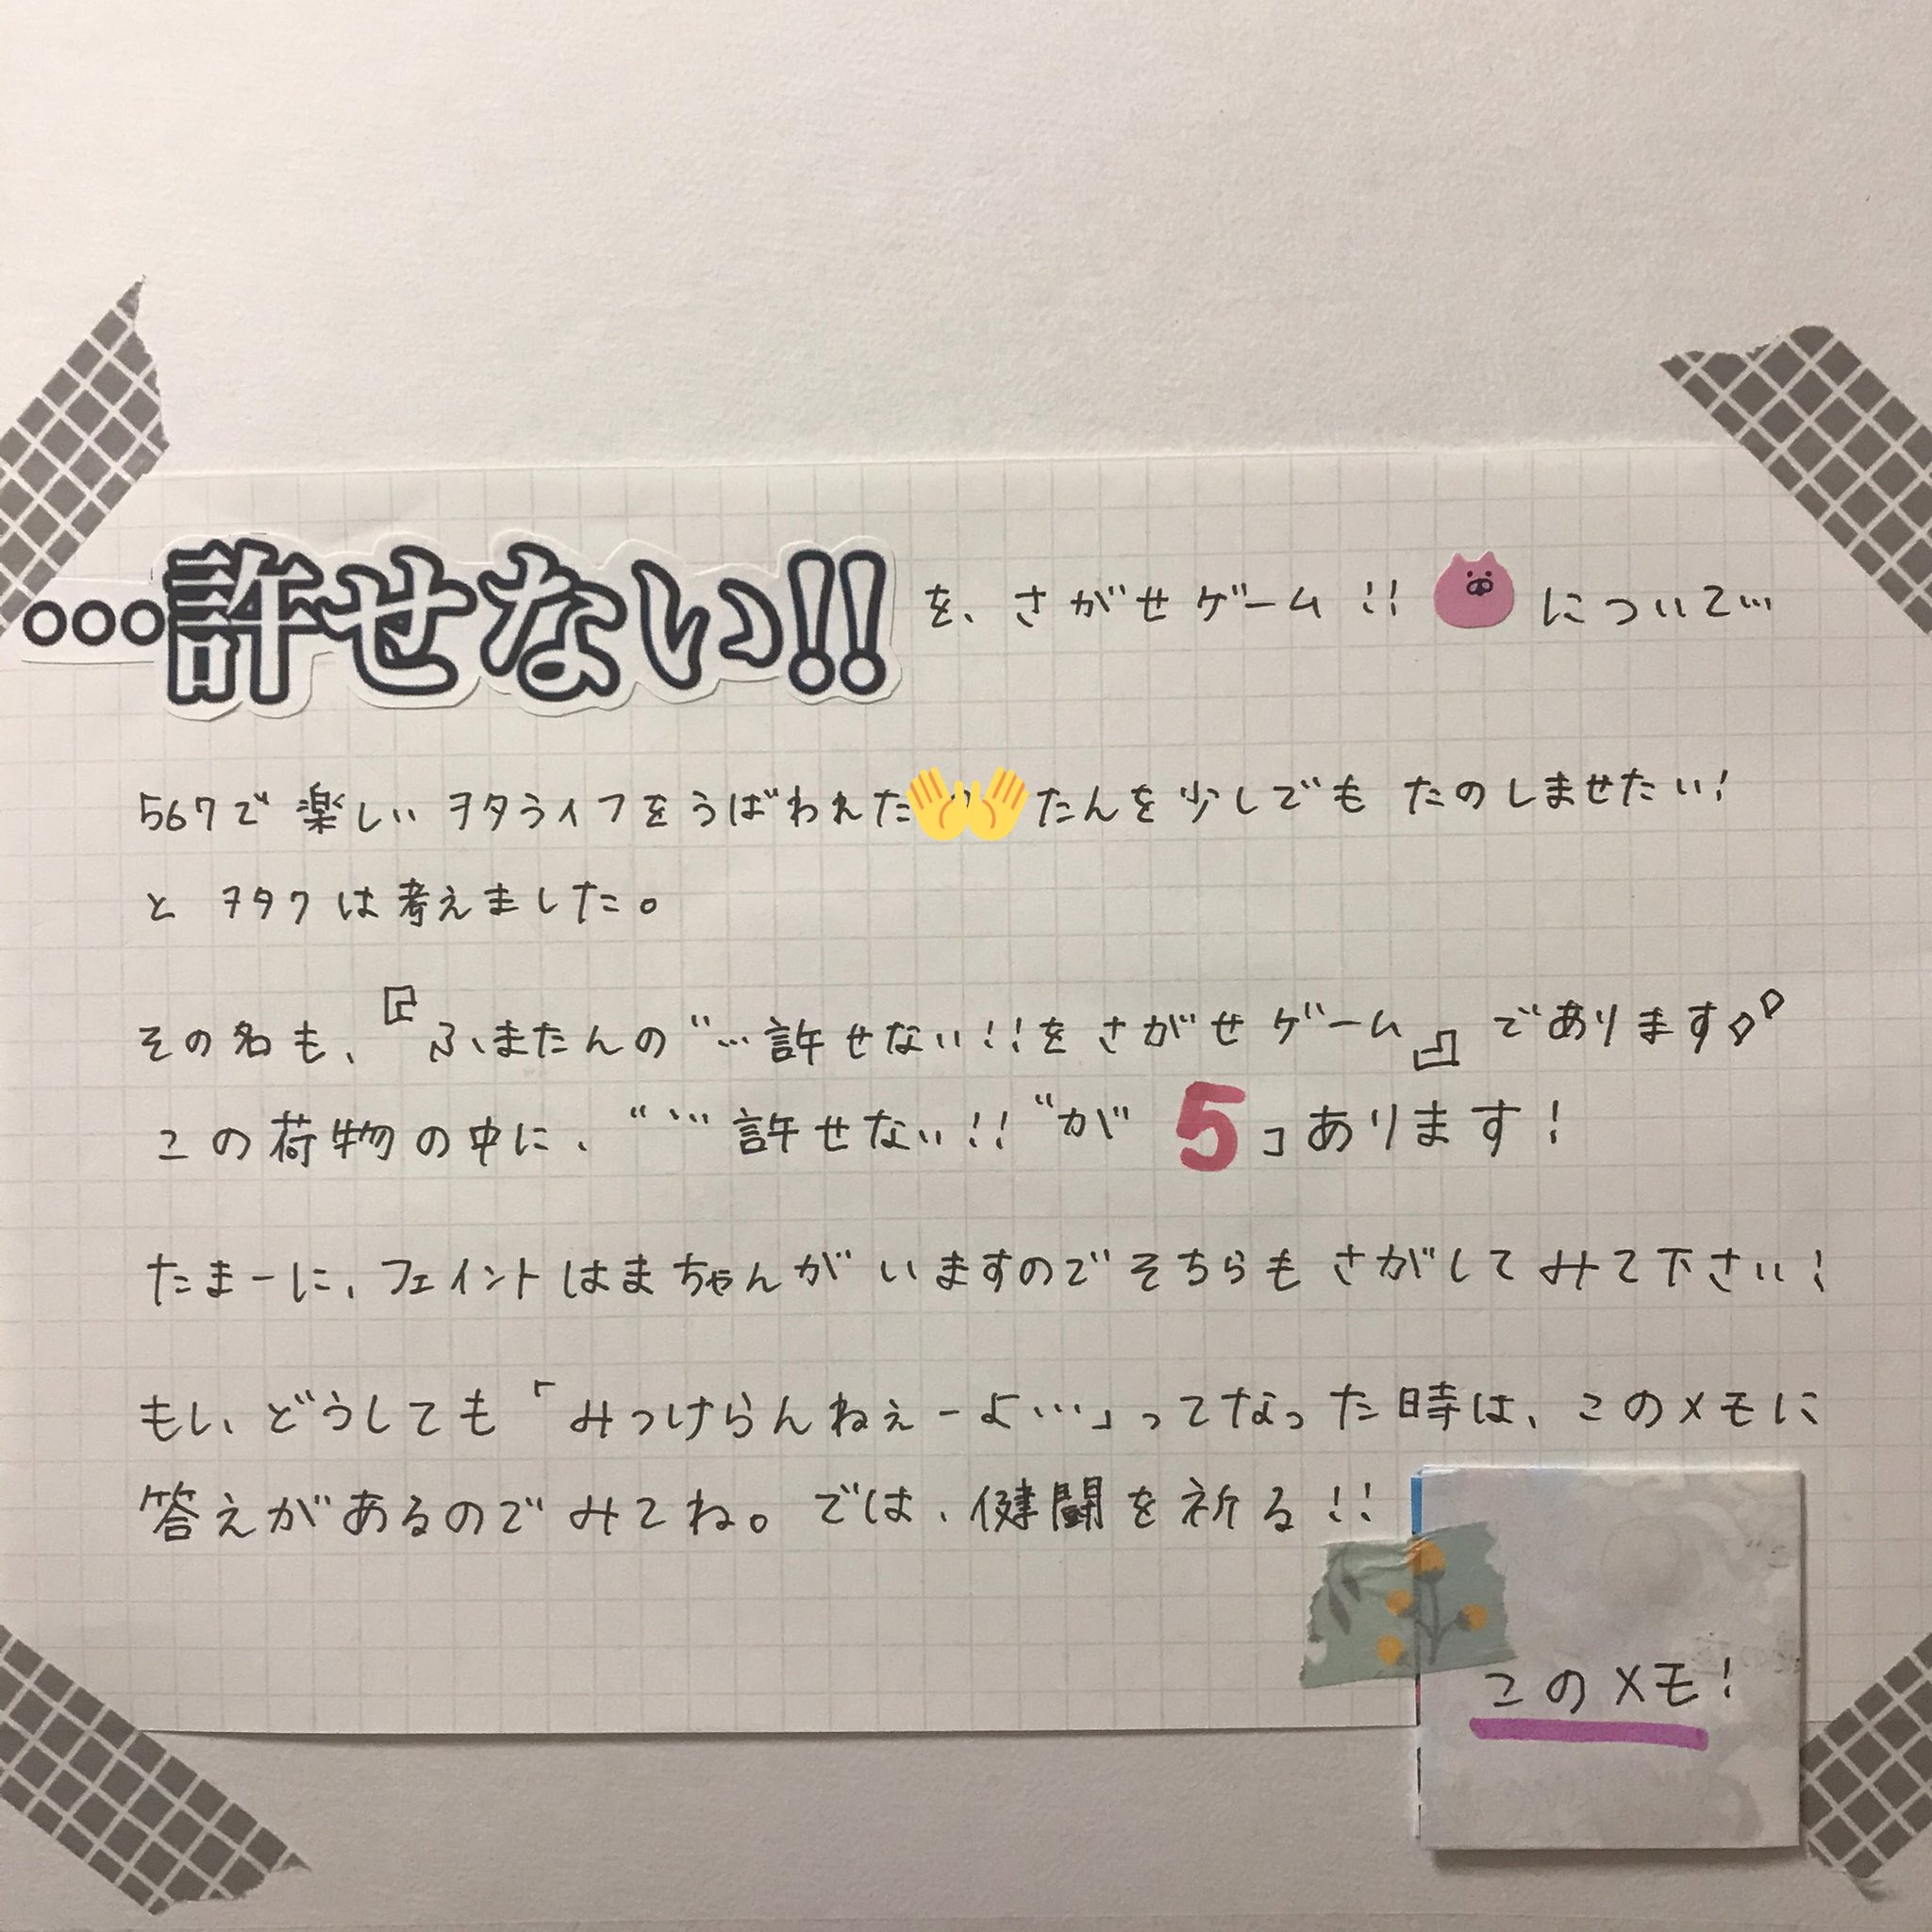 …許せない!! を、さがせゲーム!! について…
567で楽しいヲタライフをうばわれた たんを少しでも たのしませたい!
と ヲタクは考えました。
その名も、『ふまたんの“…許せない!!をさがせゲーム』であります
この荷物の中に、“…許せない!!“が 5コあります!
たまーに、フェイントはまちゃんがいますのでそちらもさがしてみて下さい!
もし、どうしても「みつけらんねぇーよ…」ってなった時は、このメモに
答えがあるのでみてね。では、健闘を祈る!!
このメモ!